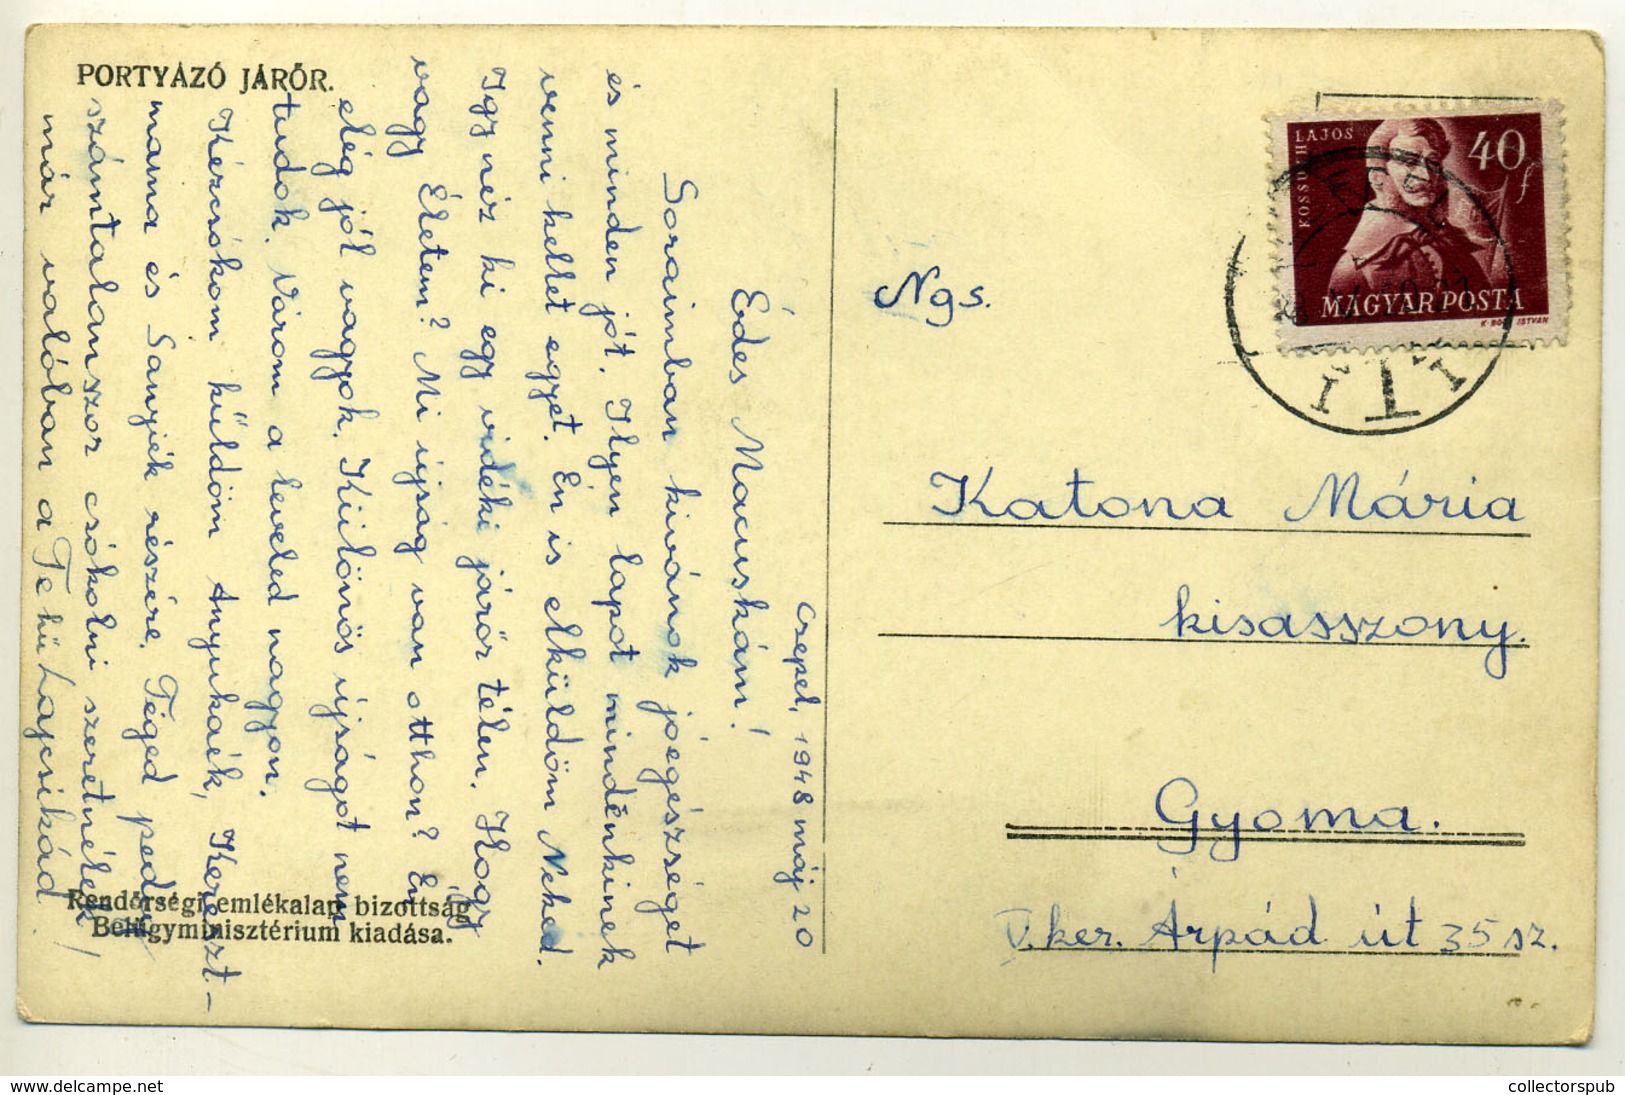 PORTYÁZÓ JÁRŐR.
Csepel, 1948 máj 20
Édes Macuskám!
Soraimban kivánok jóegészséget
és minden jót. Ilyen lapot mindénkinek
venni kellet egyet. Én is elküldöm Neked.
Igy néz ki egy vidéki járőr télen. Hogy
vagy Életem? Mi ujság van otthon? Én
elég jól vagyok. Külömös ujságot nem
tudok. Várom a leveled nagyon.
Kézcsókom küldöm Anyukáék, Kereszt-
mama és Sanyiék részére. Téged pedig
számtalanszor csókolni szeretnélek!
már valóban a Te hű Lajcsikád.
Rendőrségi emlékalap bizottság
Belügyminisztérium kiadása.
KOSSUTH LAJOS
40 f
MAGYAR POSTA
ISTVÁN
Ngs.
Katona Mária
kisasszony.
Gyoma.
V. ker. Árpád út 35 sz.
www.delcampe.net
collectorspub